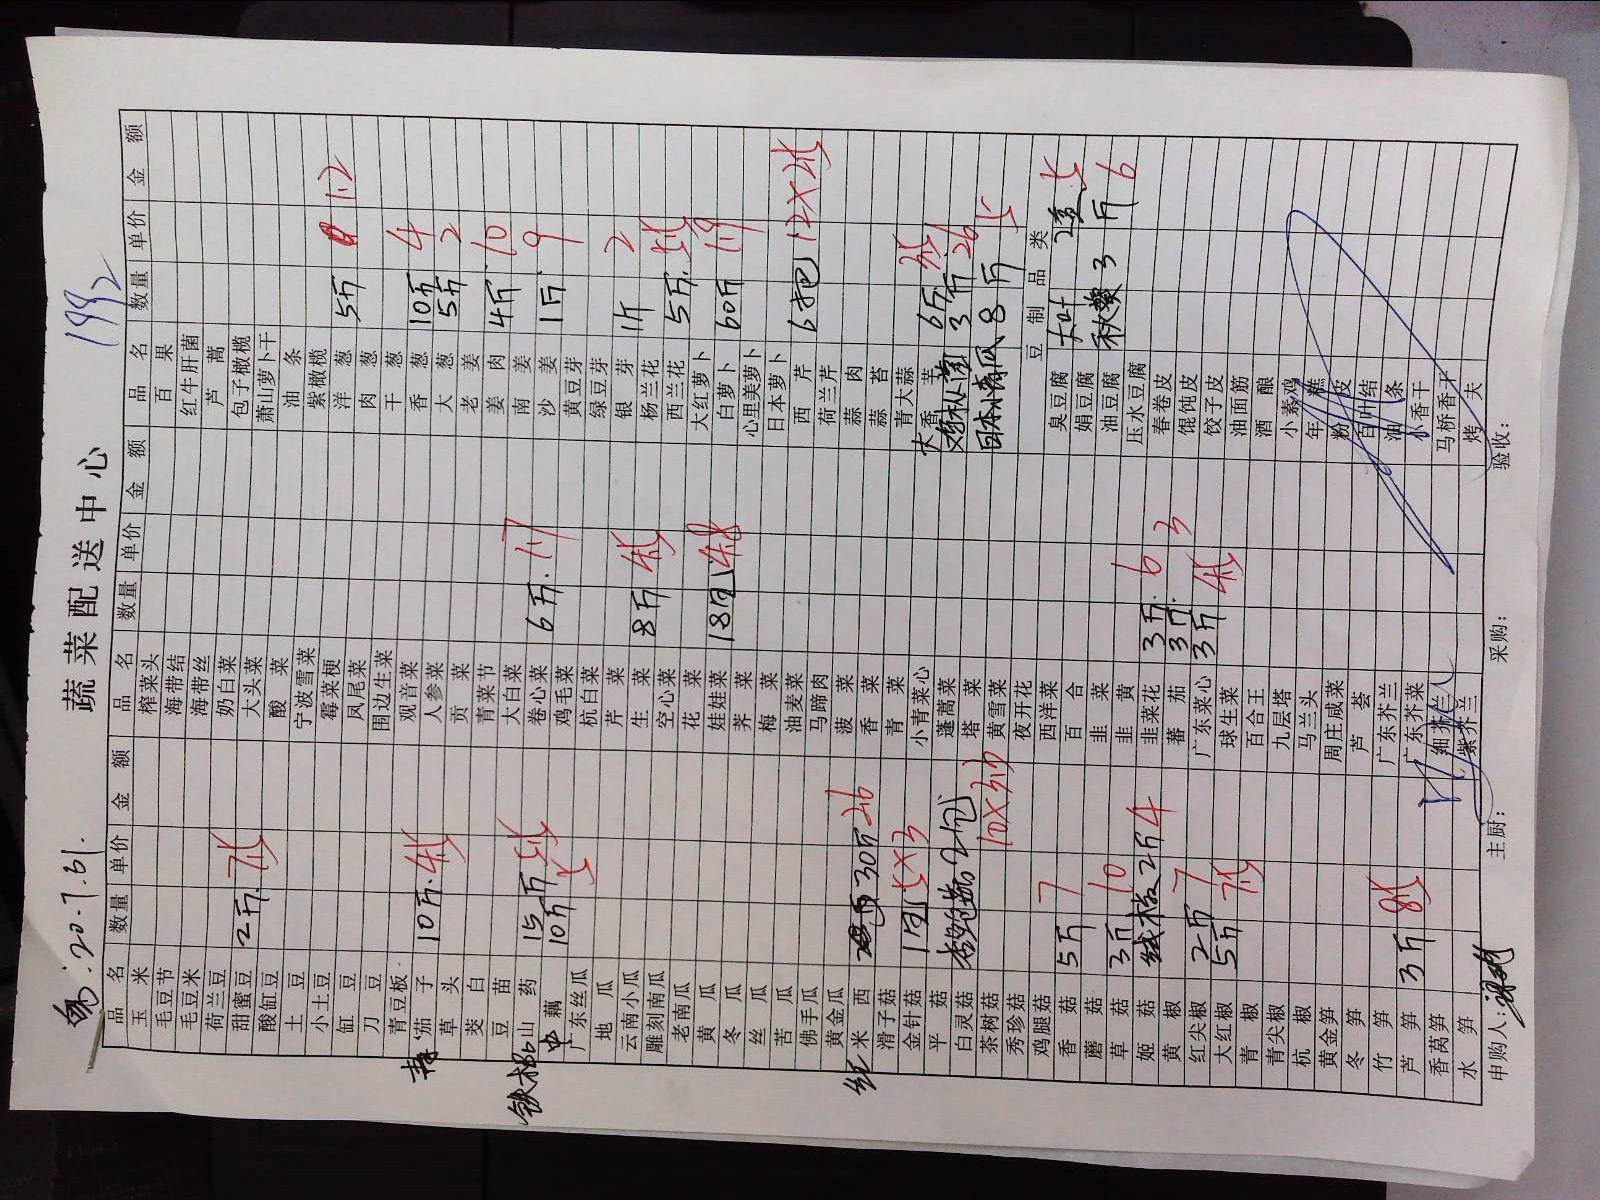 1992
蔬菜配送中心
20.7.31.
品名 数量 单价 金额 品名 数量 单价 金额 品名 数量 单价 金额
玉米 榨菜头 百果
毛豆节 海带结 红牛肝菌
毛豆米 海带丝 芦蒿
荷兰豆 奶白菜 包子橄榄
甜蜜豆 2斤 大头菜 萧山萝卜干
酸缸豆 酸菜 油条
土豆 宁波雪菜 紫橄榄
小土豆 霉菜梗 洋葱 5斤 1.2
缸豆 凤尾菜 肉葱
刀豆 围边生菜 干葱
青豆板 观音菜 香葱 10斤 4
茄子 10斤 人参菜 大葱 5斤 2
草头 贡菜 老姜
茭白 青菜节 姜肉 4斤 10
豆苗 大白菜 南姜
铁棍山药 15斤 卷心菜 6斤 沙姜 1斤 9
中藕 10斤 鸡毛菜 黄豆芽
广东丝瓜 杭白菜 绿豆芽
地瓜 芹菜 银芽 1斤 2
云南小瓜 生菜 8斤 杨兰花
雕刻南瓜 空心菜 西兰花 5斤
老南瓜 花菜 大红萝卜
黄瓜 娃娃菜 白萝卜 60斤
冬瓜 荠菜 心里美萝卜
丝瓜 梅菜 日本萝卜
苦瓜 油麦菜 西芹 6把
佛手瓜 马蹄肉 荷兰芹
黄金瓜 菠菜 蒜肉
红米西 30斤 香菜 蒜苔
滑子菇 青菜 青大蒜
金针菇 小青菜心 大香芋 6斤
平菇 蓬蒿菜 3斤
白灵菇 塔菜 日本小南瓜 8斤
茶树菇 黄雪菜
秀珍菇 夜开花 豆制品类
鸡腿菇 西洋菜 臭豆腐
香菇 5斤 7 百合 娟豆腐
蘑菇 韭菜 油豆腐
草菇 3斤 10 韭黄 压水豆腐
姬菇 2斤 4 韭菜花 3斤 6 春卷皮
黄椒 蕃茄 3斤 3 馄饨皮
红尖椒 2斤 7 广东菜心 3斤 饺子皮
大红椒 5斤 球生菜 油面筋
青椒 百合王 酒酿
青尖椒 九层塔 小素鸡
杭椒 马兰头 年糕
黄金笋 周庄咸菜 粉皮
冬笋 芦荟 百叶结
竹笋 广东芥兰 油条
芦笋 3斤 广东芥菜 小香干
香莴笋 细芥兰 马桥香干
水笋 紫芥兰 烤夫
申购人: 主厨: 采购: 验收: